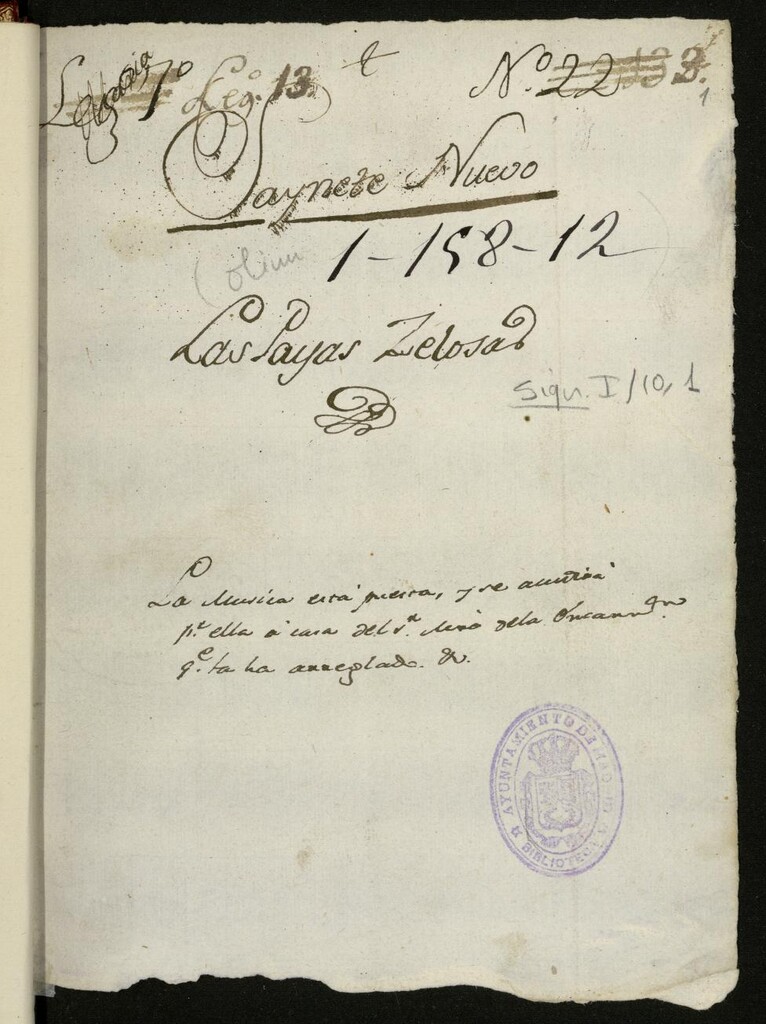 Leg.º 13. t N.º 22 3.
1
Saynete Nuevo
(olim 1-158-12)
Las Payas Zelosas
Sign. I/10, 1
La Musica està puesta, y se acudirà
p.r ella à casa del s.r dela Encarn.on
q.e la ha arreglado. &.
AYUNTAMIENTO DE MADRID
BIBLIOTECA